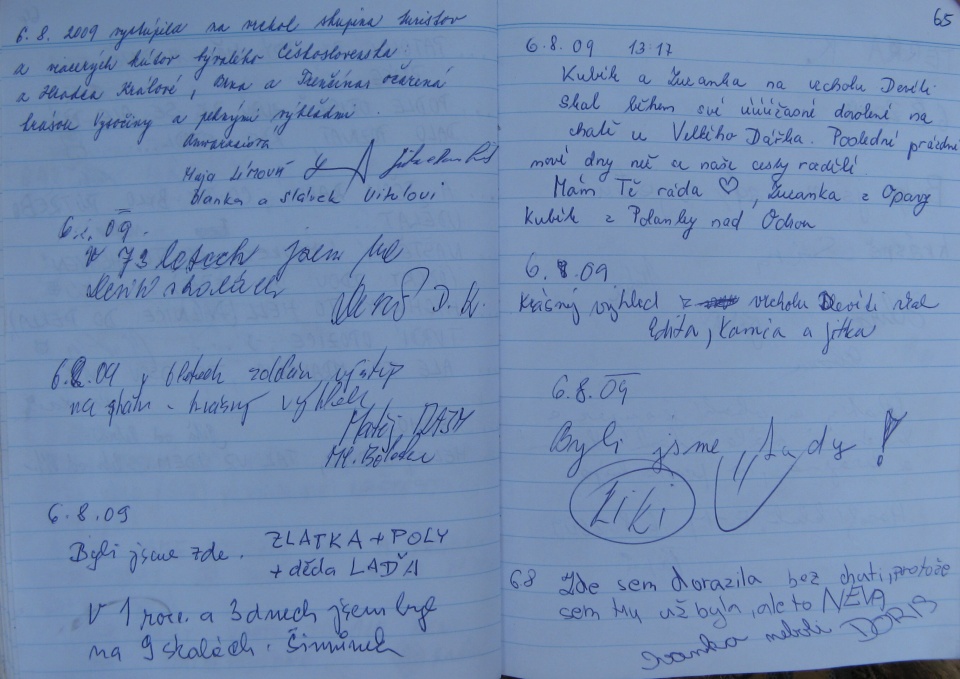 6.8. 2009 vystúpila na vrchol skupina turistov
a viacerých klubov bývalého Československa
a Hradca Králové, Brna a Trenčína očarená
krásou Vysočiny a peknými výhľadmi
Maja Límová
Blanka a Slávek Vítulovi
6.8.09.
V 73 letech jsem na
Devíti skalách
D. K.
6.8.09 v 6 letech zvládám výstup
na skálu - krásný výhled
Matěj
Ml. Bo
6.8.09
Byli jsme zde. ZLATKA + POLY
+ děda LAĎA
V 1 roce a 3 dnech jsem byl
na 9 skalách. Šimůnek
65
6.8.09 13:17
Kubík a Zuzanka na vrcholu Devíti
Skal během své úúúžasné dovolené na
chatě u Velkého Dářka. Poslední prázdni
nové dny než se naše cesty rozdělí
Mám Tě ráda ♡, Zuzanka z Opavy
Kubík z Polanky nad Odrou
6.8.09
Krásný výhled z vrcholu Devíti skal
Edita, Kamča a Jitka
6.8.09
Byli jsme tady!
Kiki
6.8 Zde sem dorazila bez chuti, protože
sem tu už byla, ale to NEVA
Ivanka neboli DORIS